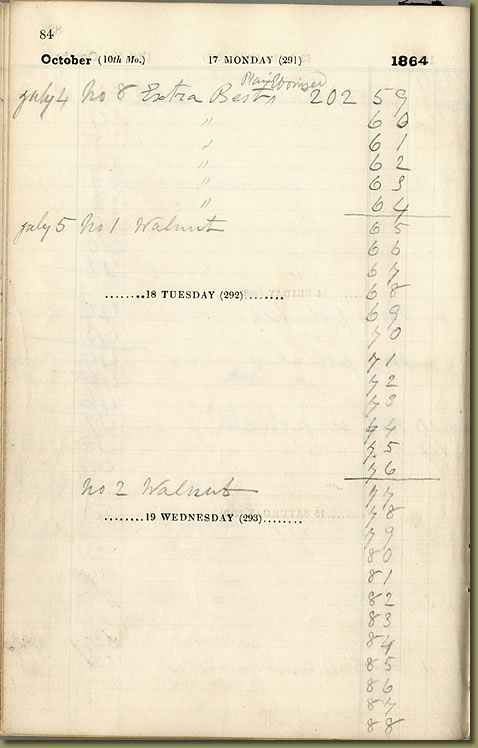 84
October (10th Mo.) 17 MONDAY (291) 1864
July 4 No 8 Extra Bests 202 59
" 60
" 61
" 62
" 63
" 64
July 5 No 1 Walnut 65
66
67
........18 TUESDAY (292)........ 68
69
70
71
72
73
74
75
76
No 2 Walnut 77
........19 WEDNESDAY (293)........ 78
79
80
81
82
83
84
85
86
87
88